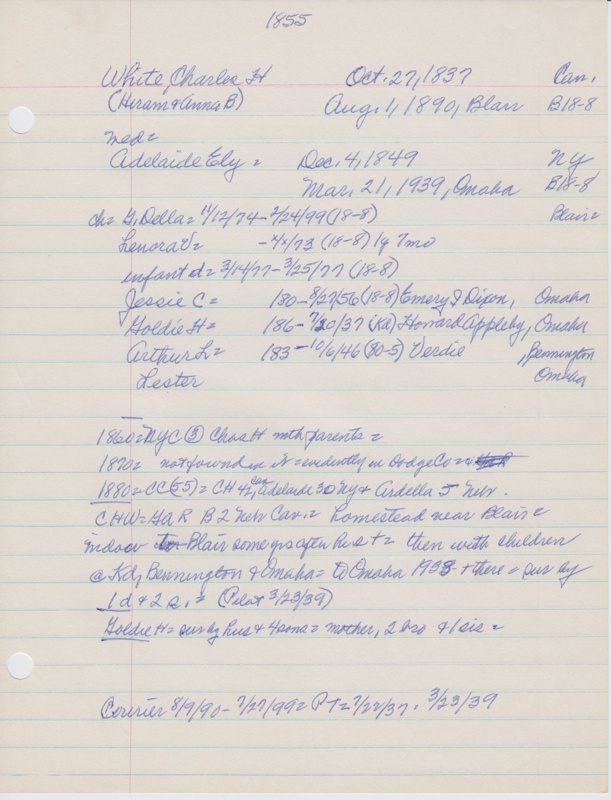 1855
White, Charles H Oct. 27, 1837 Can.
(Hiram & Anna B) Aug. 1, 1890, Blair B18-8
med=
Adelaide Ely = Dec. 4, 1849 NY
Mar. 21, 1939, Omaha B18-8
ch= G. Della= 11/12/74-2/24/99 (18-8) Blair=
Lenora V= /73 (18-8) 1y 7mo
infant d= 3/14/77-3/25/77 (18-8)
Jessie C= 180-8/27/56 (18-8) Emery J Dixon, Omaha
Goldie H= 186-7/20/37 (Kd) Howard Appleby, Omaha
Arthur L= 183-10/6/46 (80-5) Verdie , Bennington
Lester Omaha
1860=NYC (3) Chas H with parents=
1870= not found in N=evidently in Dodge Co
1880=CC(55)= CH 42 Can, Adelaide 30 NY & Ardella 5 Neb.
CHW=GAR B 2 Neb Cav.= homestead near Blair=
in Blair some yrs after hus += then with children
@ Kd, Bennington & Omaha= to Omaha 1938 + there= sur by
1 d & 2 s.= (Pilot 3/23/39)
Goldie H= sur by hus & 4 sons= mother, 2 bro & 1 sis=
Courier 8/9/90- 7/27/99= PT=7/22/37. 3/23/39